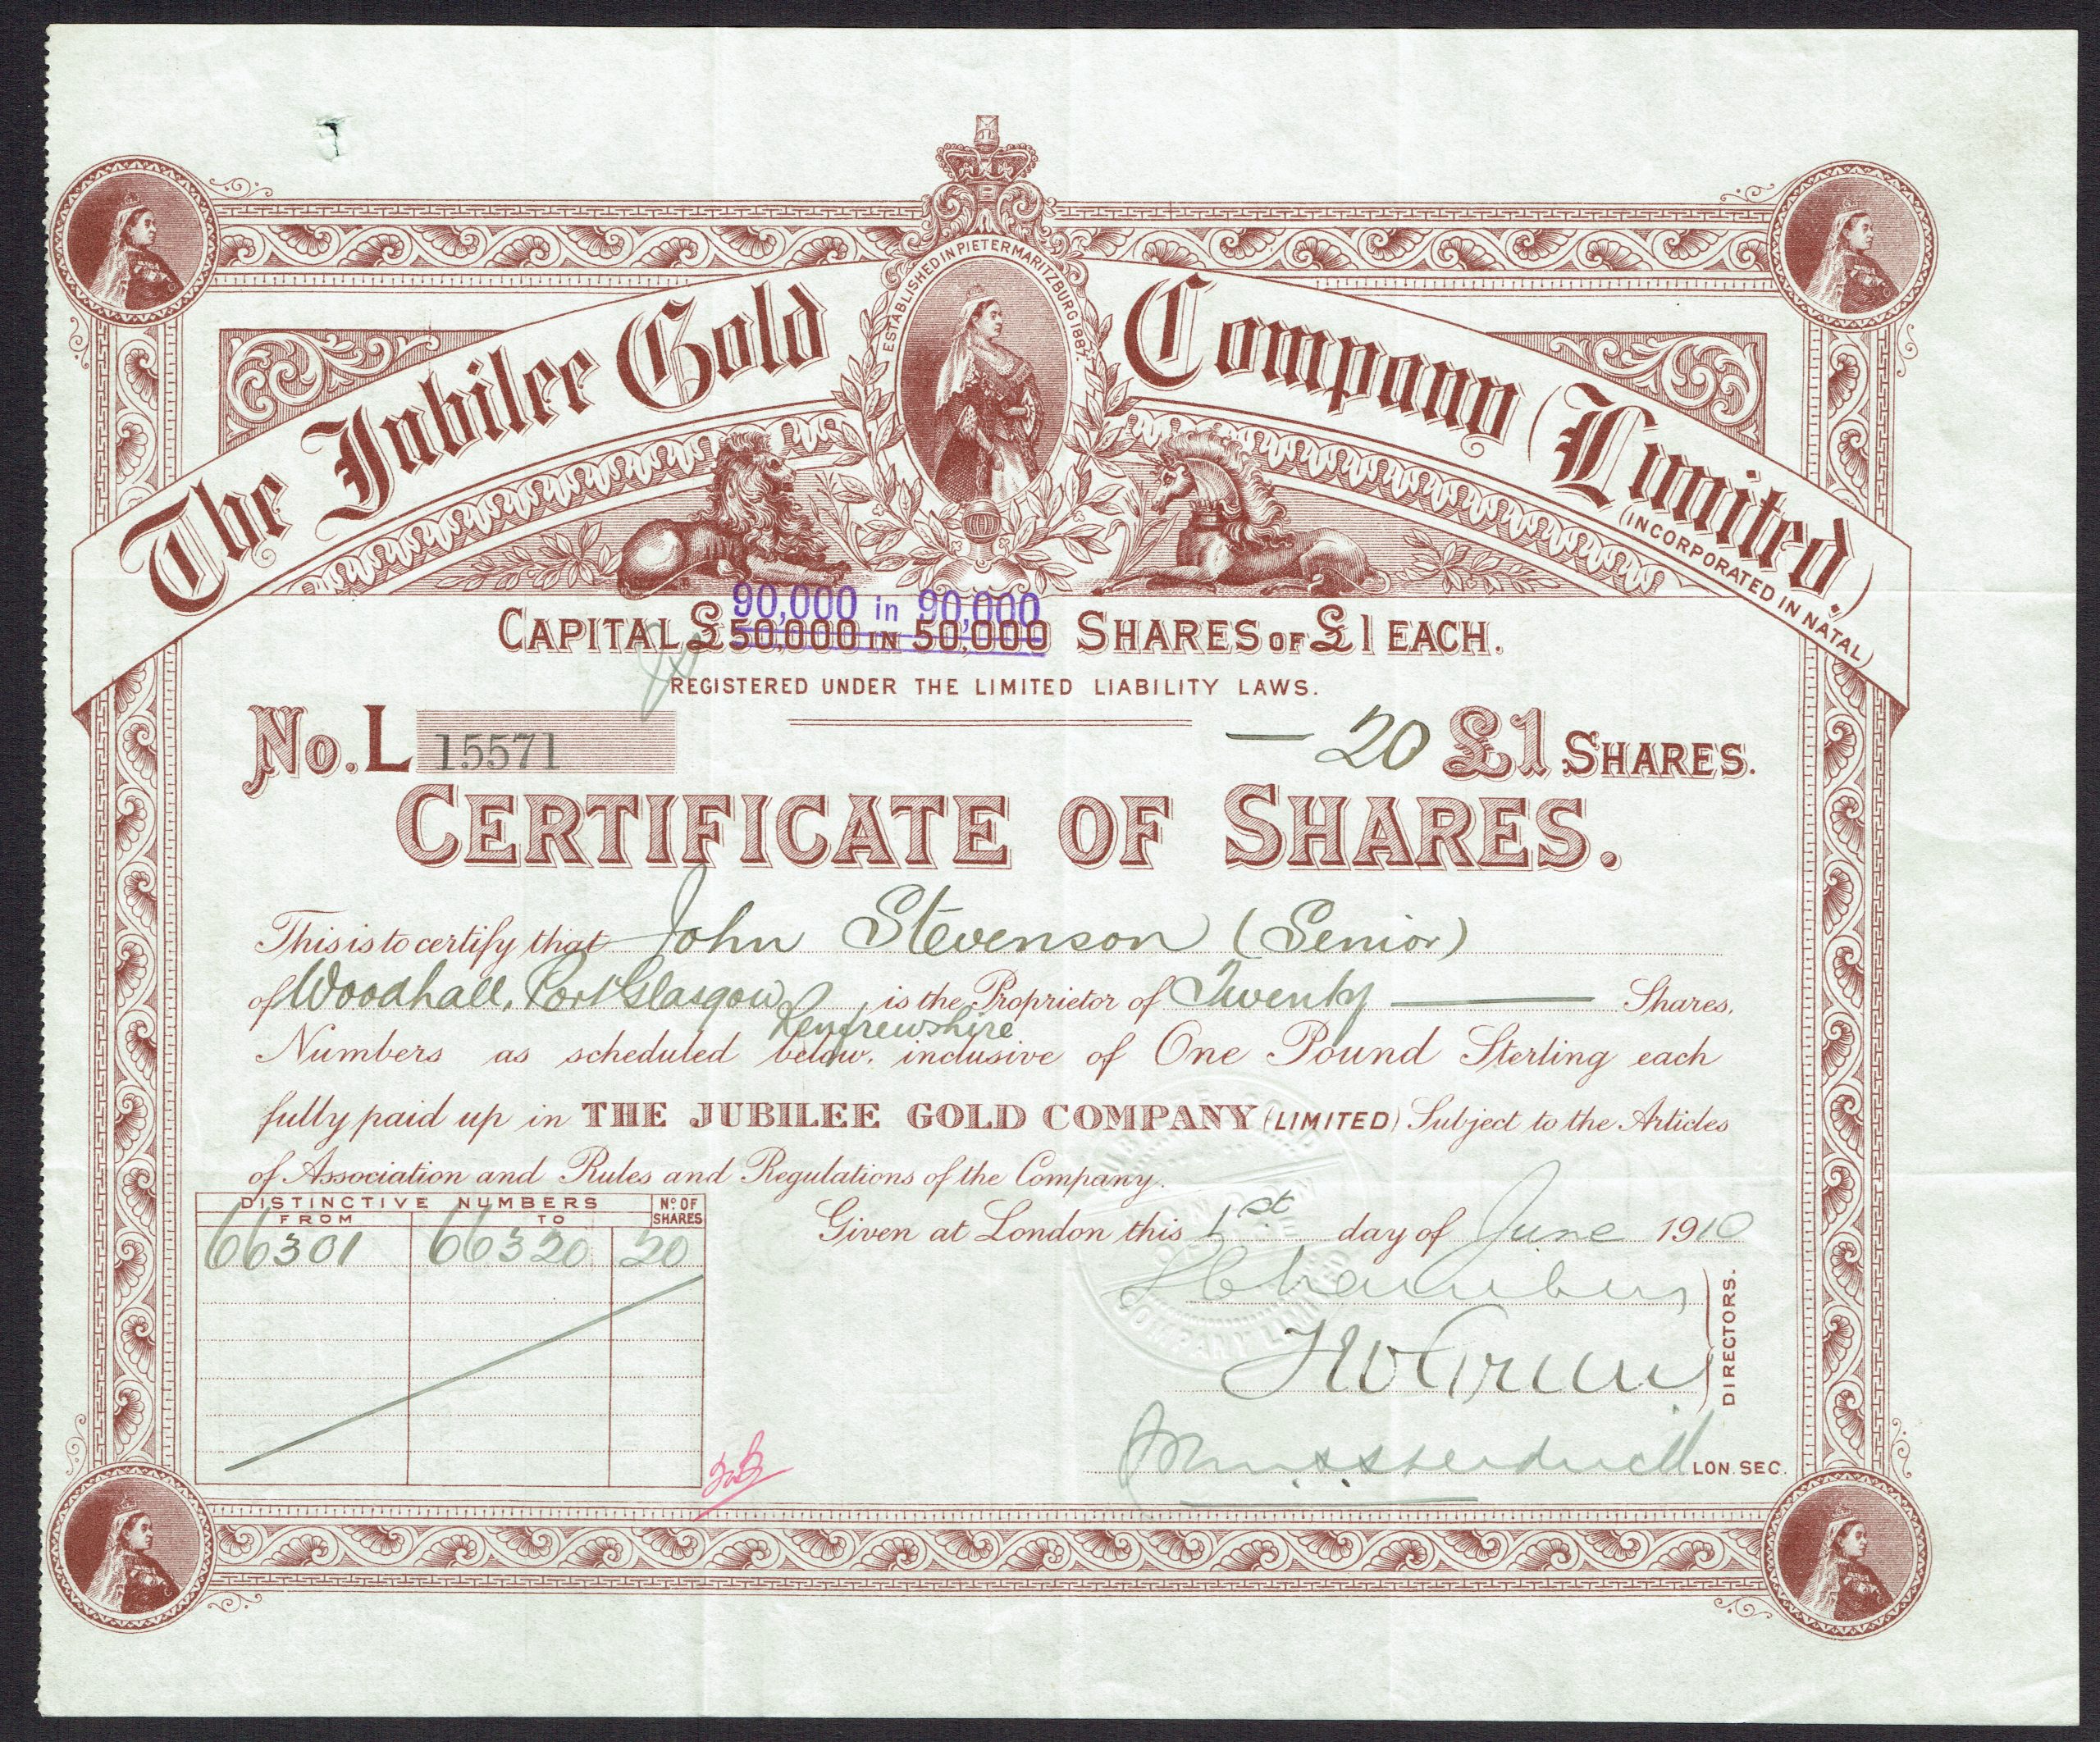 ESTABLISHED IN PIETERMARITZBURG 1887.
The Jubilee Gold Company (Limited.)
(INCORPORATED IN NATAL)
90,000 in 90,000
CAPITAL £50,000 IN 50,000 SHARES OF £1 EACH.
REGISTERED UNDER THE LIMITED LIABILITY LAWS.
No. L 15571
— 20 £1 SHARES.
CERTIFICATE OF SHARES.
This is to certify that John Stevenson (Senior)
of Woodhall, Port Glasgow, is the Proprietor of Twenty — Shares,
Renfrewshire
Numbers as scheduled below, inclusive of One Pound Sterling each
fully paid up in THE JUBILEE GOLD COMPANY (LIMITED) Subject to the Articles
of Association and Rules and Regulations of the Company.
DISTINCTIVE NUMBERS Nº OF SHARES
FROM TO
66301 66320 20
Given at London this 1st day of June 1910
DIRECTORS.
LON. SEC.
JUBILEE GOLD
LONDON
OFFICE
COMPANY LIMITED